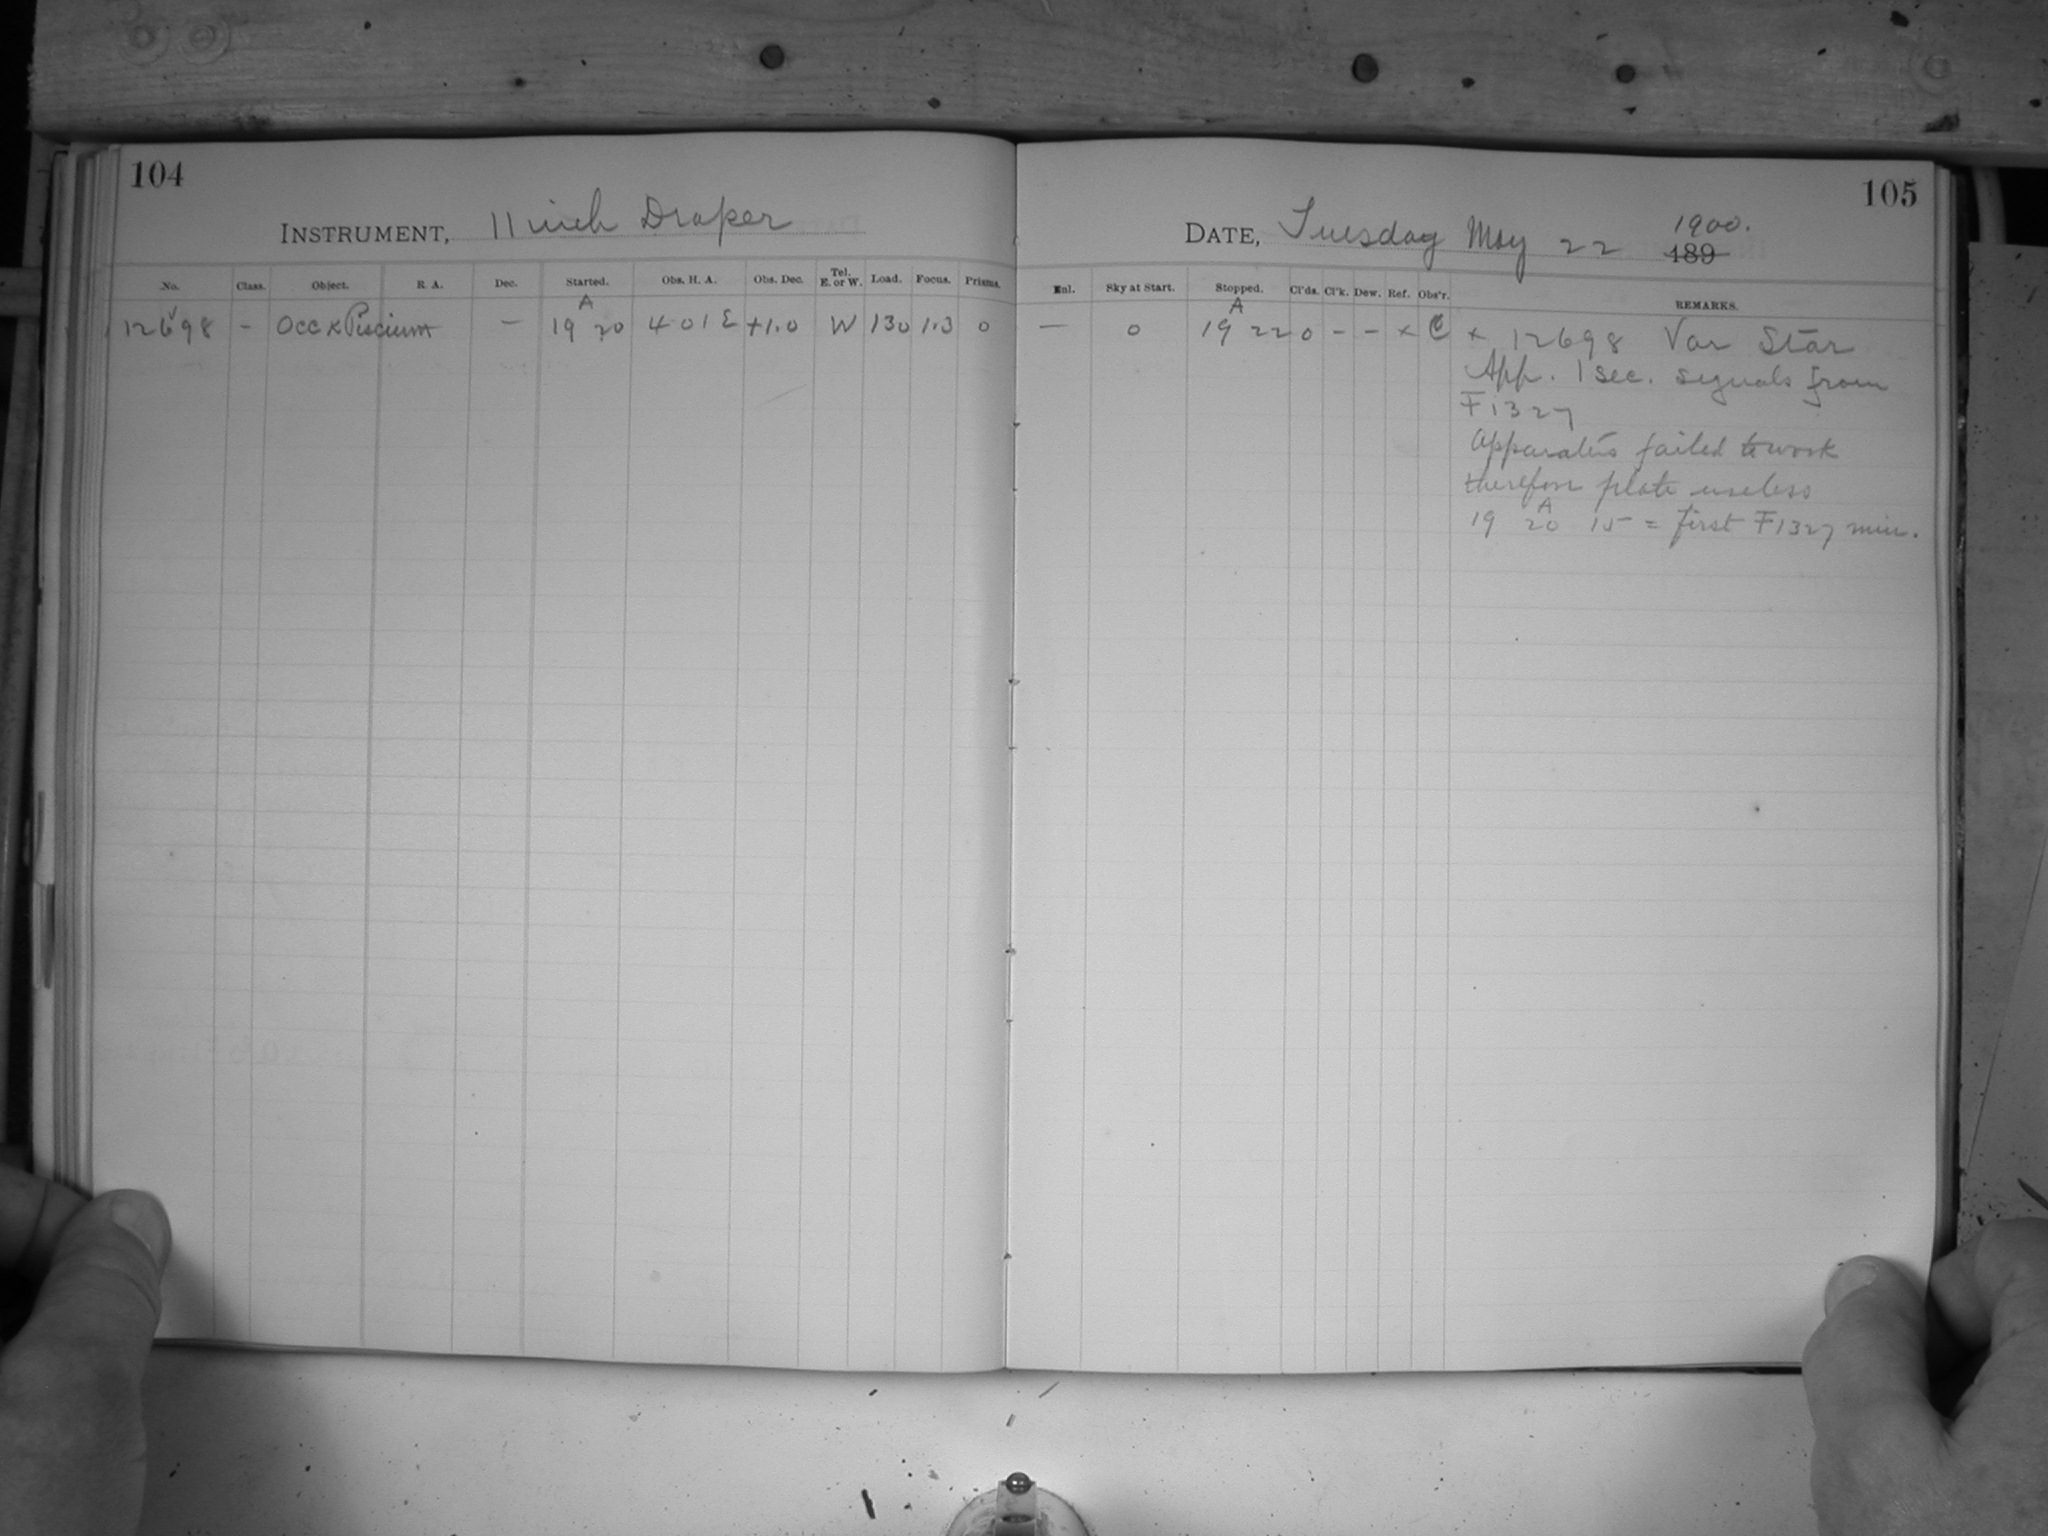 104
INSTRUMENT, 11 inch Draper
No. Class. Object. R. A. Dec. Started. Obs. H. A. Obs. Dec. Tel. E. or W. Load. Focus. Prisms.
A
12698 - Occ κ Piscium — 19 20 4 01 E +1.0 W 130 1.3 0
105
DATE, Tuesday May 22 1900.
189
Enl. Sky at Start. Stopped. Cl'ds. Cl'k. Dew. Ref. Obs'r. REMARKS.
A
— 0 19 22 0 - - x C x 12698 Var Star
App. 1 sec. signals from
F1327
Apparatus failed to work
therefore plate useless
A
19 20 15 = first F1327 min.